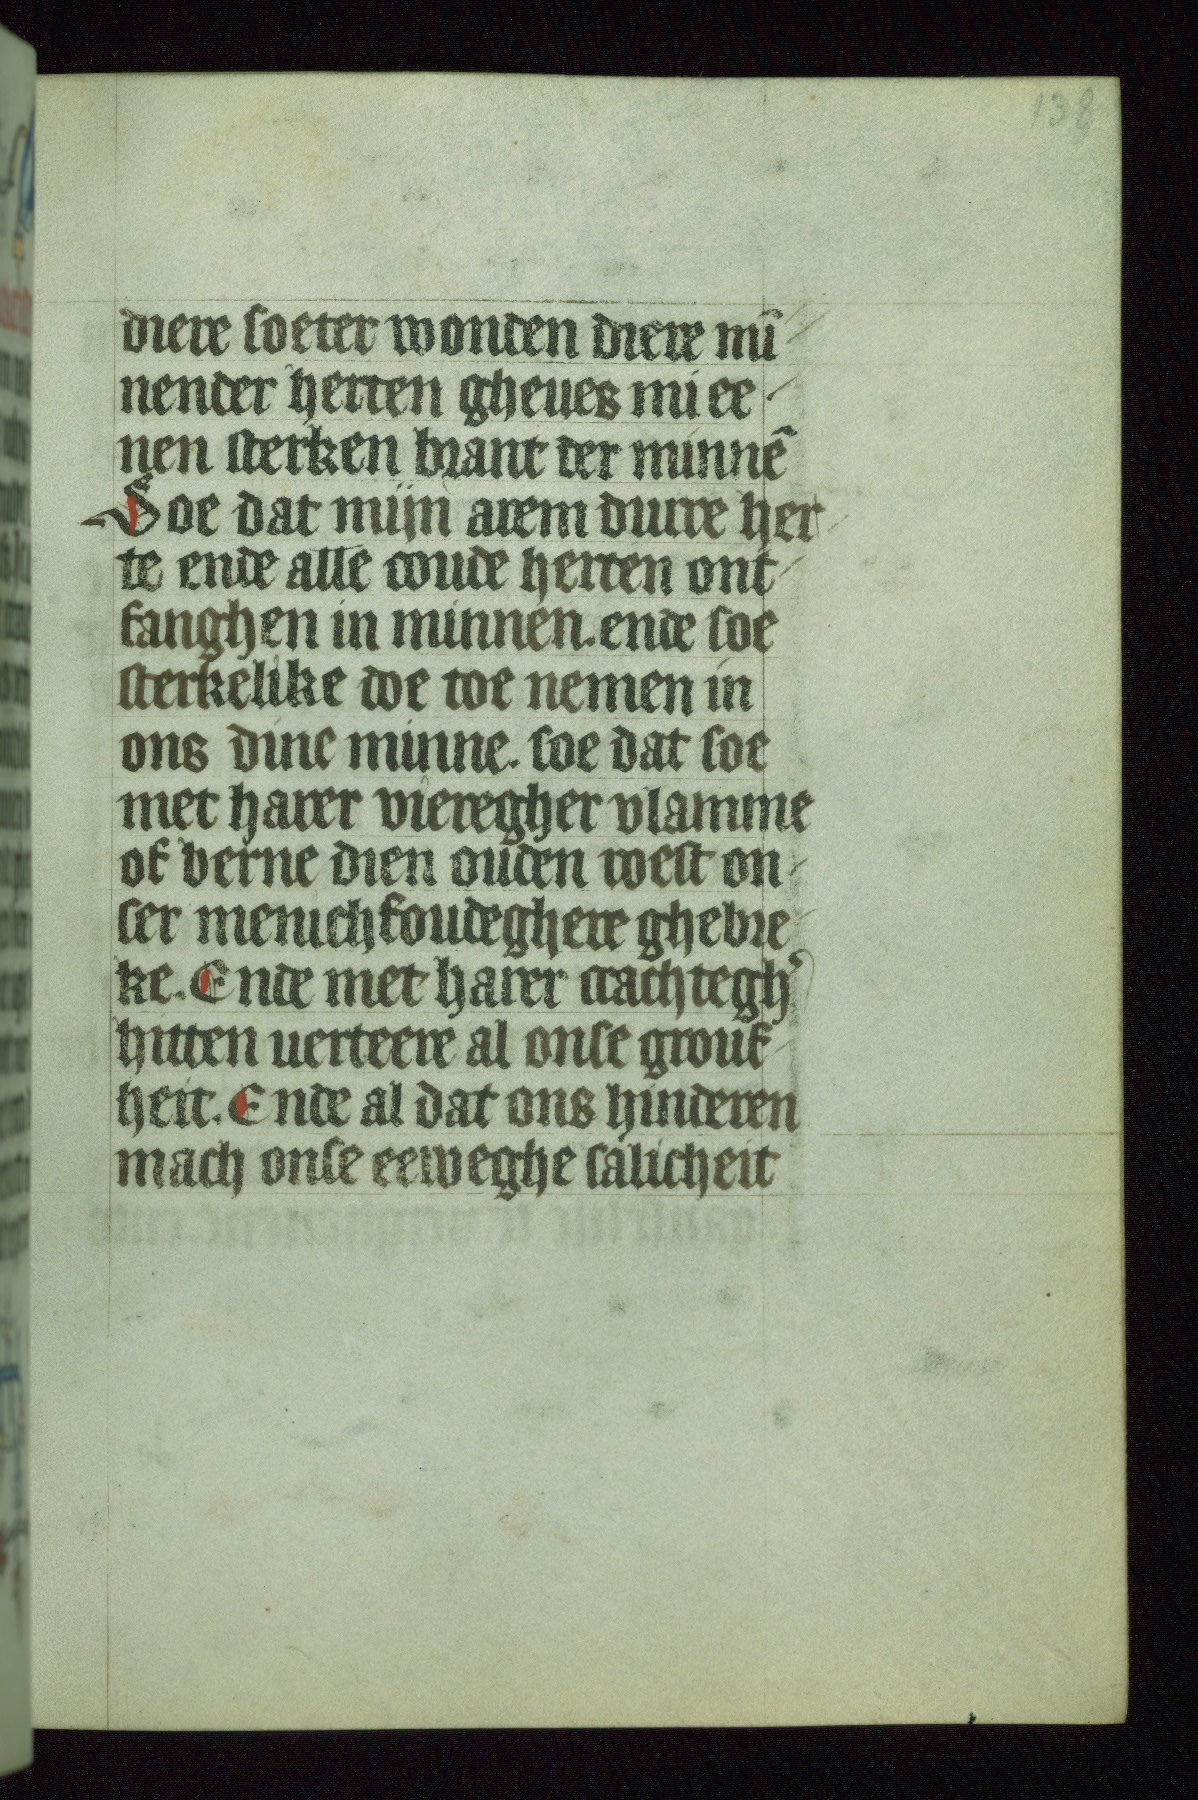 138
diere soeter wonden diere mī
nender herten gheues mi ee
nen sterken brant der minnē
Soe dat mijn arem durre her
te ende alle coude herten ont
fanghen in minnen. ende soe
sterkelike doe toe nemen in
ons dine minne. soe dat soe
met harer vieregher vlamme
of berne dien ouden roest on
ser menichfoudeghere ghebre
ke. Ende met harer crachtegh᾽
hitten uerteere al onse grouf
heit. Ende al dat ons hinderen
mach onse eeweghe salicheit